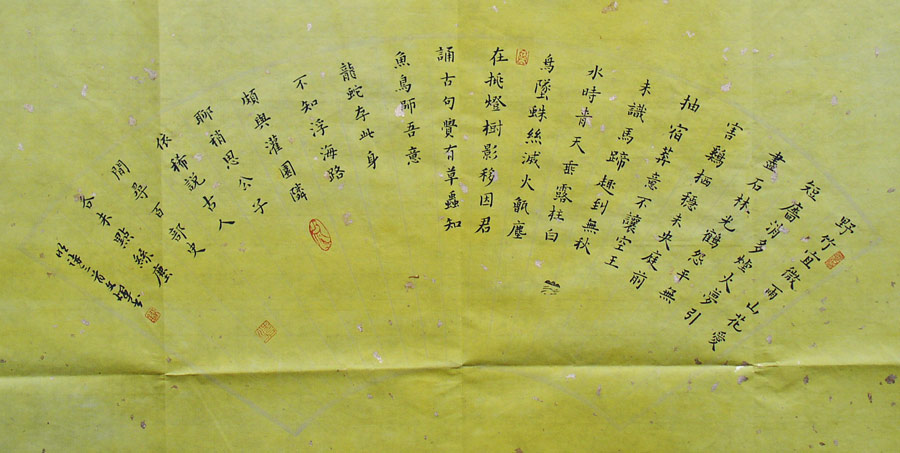 野竹宜微雨山花愛
短牆消多爐火夢引
盡石林光鶴怨平無
害鷄栖穩未央庭前
抽宿莽意不讓空王
未識馬蹄趣到無秋
水時青天垂露柱白
鳥墜蛛絲滅火甑塵
在挑燈樹影移因君
誦古句覺有草蟲知
魚鳥師吾意
龍蛇存此身
不知浮海路
頗與灌園隣
聊稍思公子
依稀說古人
閒尋百部史
今未點絲塵